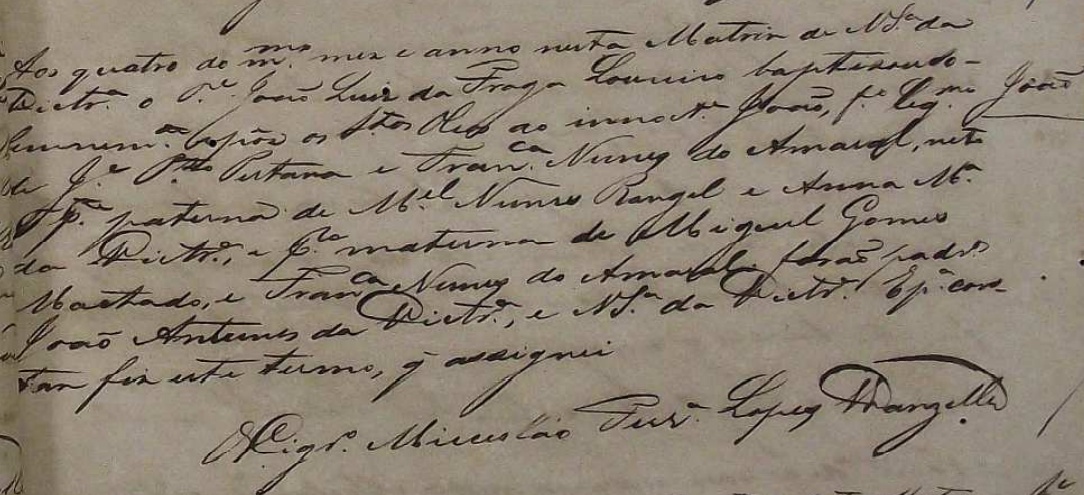 Aos quatro do m.mo mez e anno nesta Matriz de N. S.a da
Piet.e o P.e João Luiz da Fraga Loureiro baptizou so-
lemnem.e e pôz os S.tos Oleos ao innoc.te João, f.o leg.mo
João
de J.e Pestana e Fran.ca Nunes do Amaral, neto
p.e paterna de M.el Nunes Rangel e Anna M.a
da Victr.a, e p.la materna de Miguel Gomes
Machado, e Fran.ca Nunes do Amaral forão padr.os
João Antunes da Victr.a, e N. S.a da Victr.a E p.a cons-
tar fiz este termo, q assignei
O Vigr.o Mieceslão Ferr.a Lopes Wanzeller